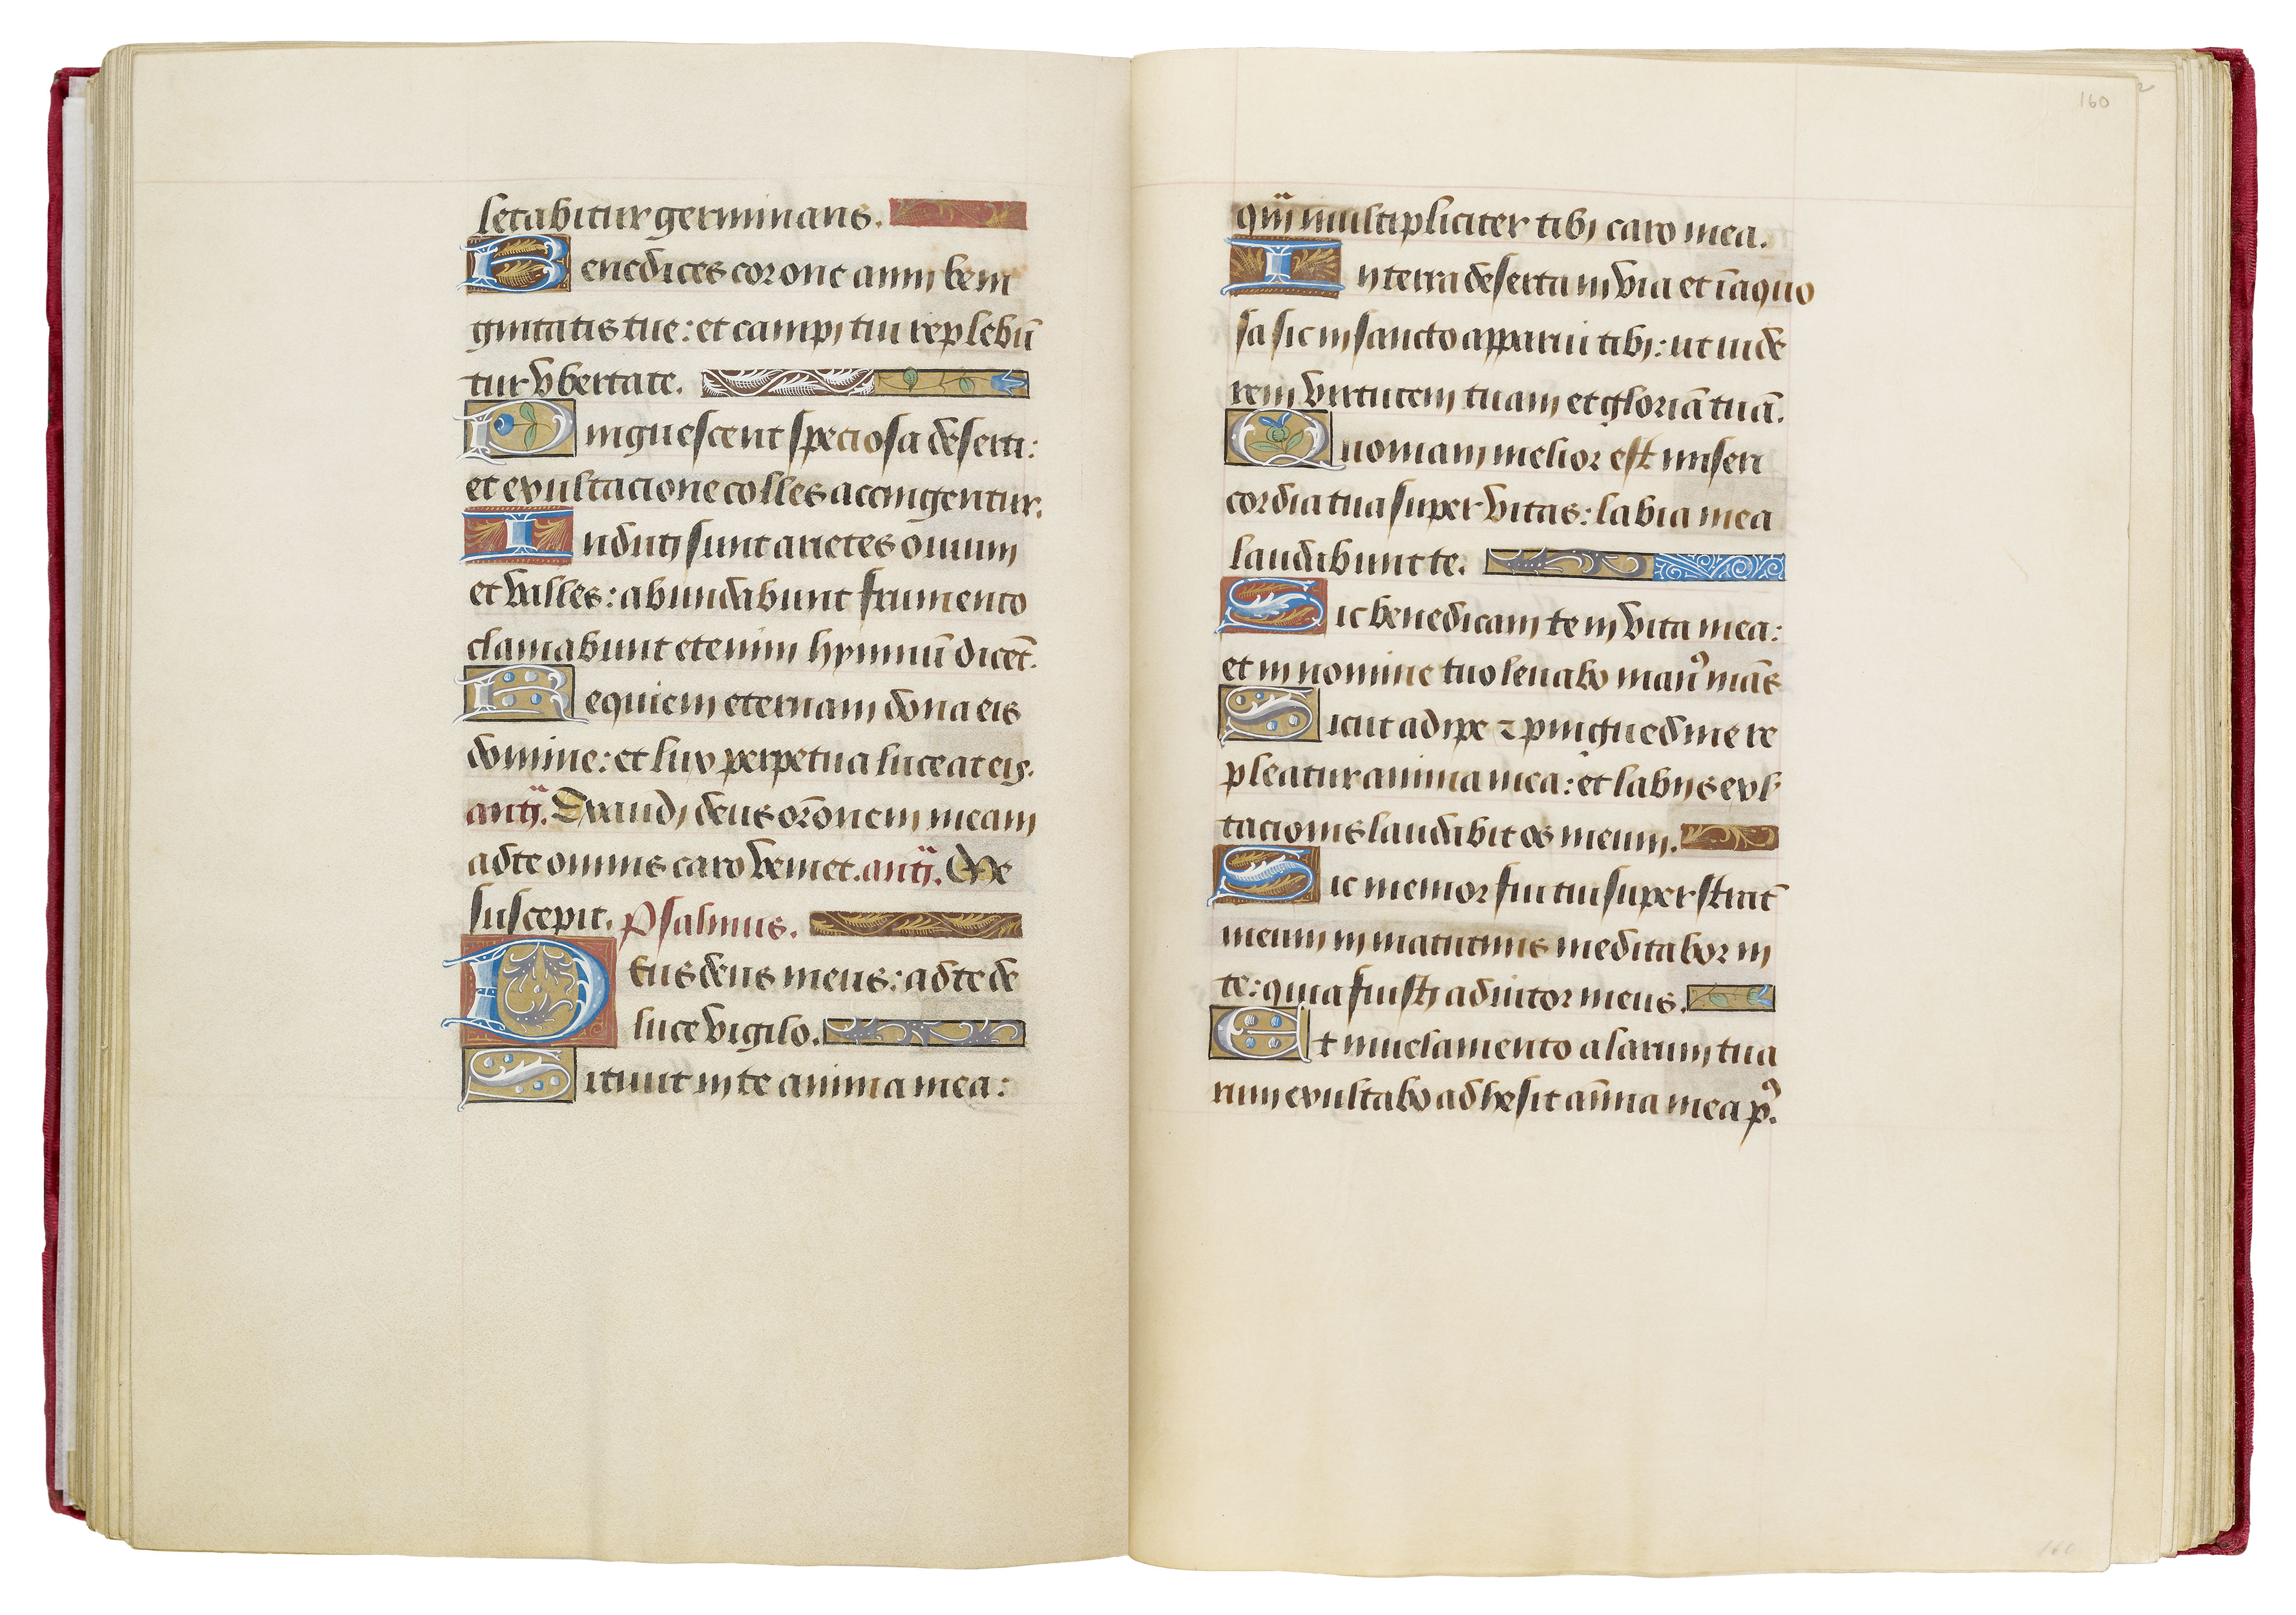 letabitur germinans.
Benedices corone anni beni
gnitatis tue: et campi tui replebū
tur vbertate.
Pinguescent speciosa deserti:
et exultacione colles accingentur.
Induti sunt arietes ouium
et valles: abundabunt frumento
clamabunt etenim hymnū dicēt.
Requiem eternam dona eis
domine: et lux perpetua luceat eis.
antī. Exaudi deus orōnem meam
ad te omnis caro veniet. antī. Me
suscepit. Psalmus.
Deus deus meus: ad te de
luce vigilo.
Sitiuit in te anima mea:
160
qm̄ multipliciter tibi caro mea.
In terra deserta inuia et īaquo
sa sic in sancto apparui tibi: ut uide
rem virtutem tuam et gloriā tuā.
Quoniam melior est miseri
cordia tua super vitas: labia mea
laudabunt te.
Sic benedicam te in vita mea:
et in nomine tuo leuabo manꝰ mās
Sicut adipe ⁊ pinguedine re
pleatur anima mea: et labijs exl
tacionis laudabit os meum.
Sic memor fui tui super stratē
meum in matutinis meditabor in
te: quia fuisti adiutor meus.
Et in uelamento alarum tua
rum exultabo adhesit aīma mea pꝰ.
160